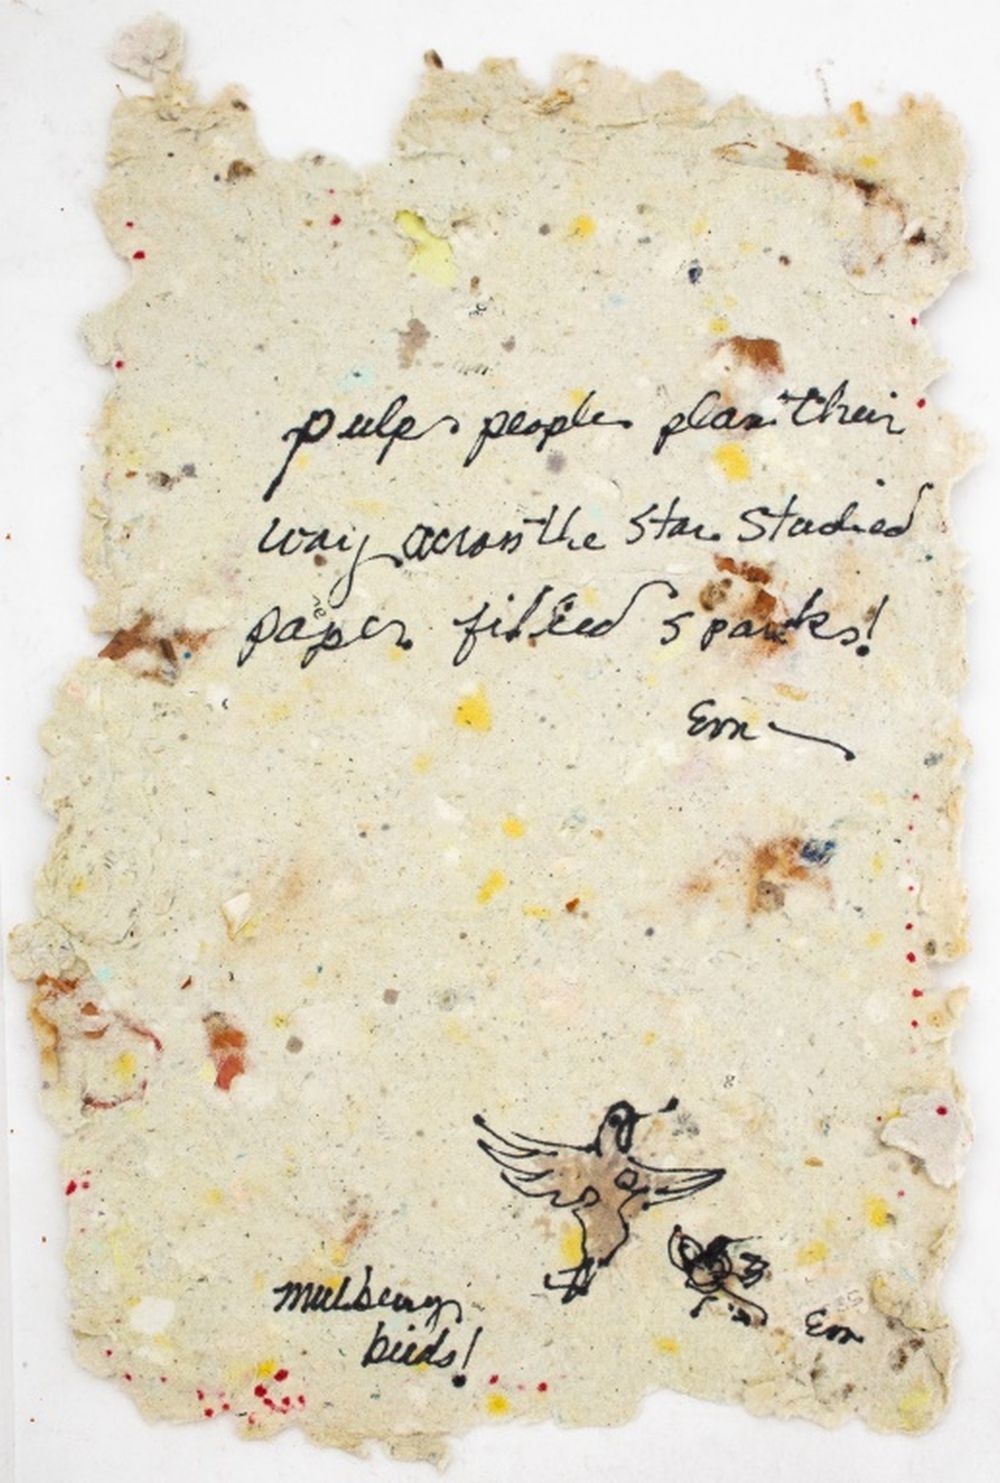 pulp people plan their
way across the star studied
paper filled sparks!
Em
mulberry
birds!
Em